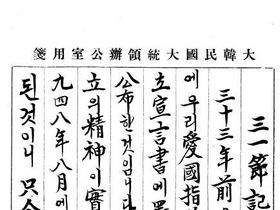 大韓民國大統領辦公室用箋
三一節記
三十三年前
에우리愛國指
立宣言書에
公布한것입니다
立의精神이實
九四八年八月에
된것이니只今